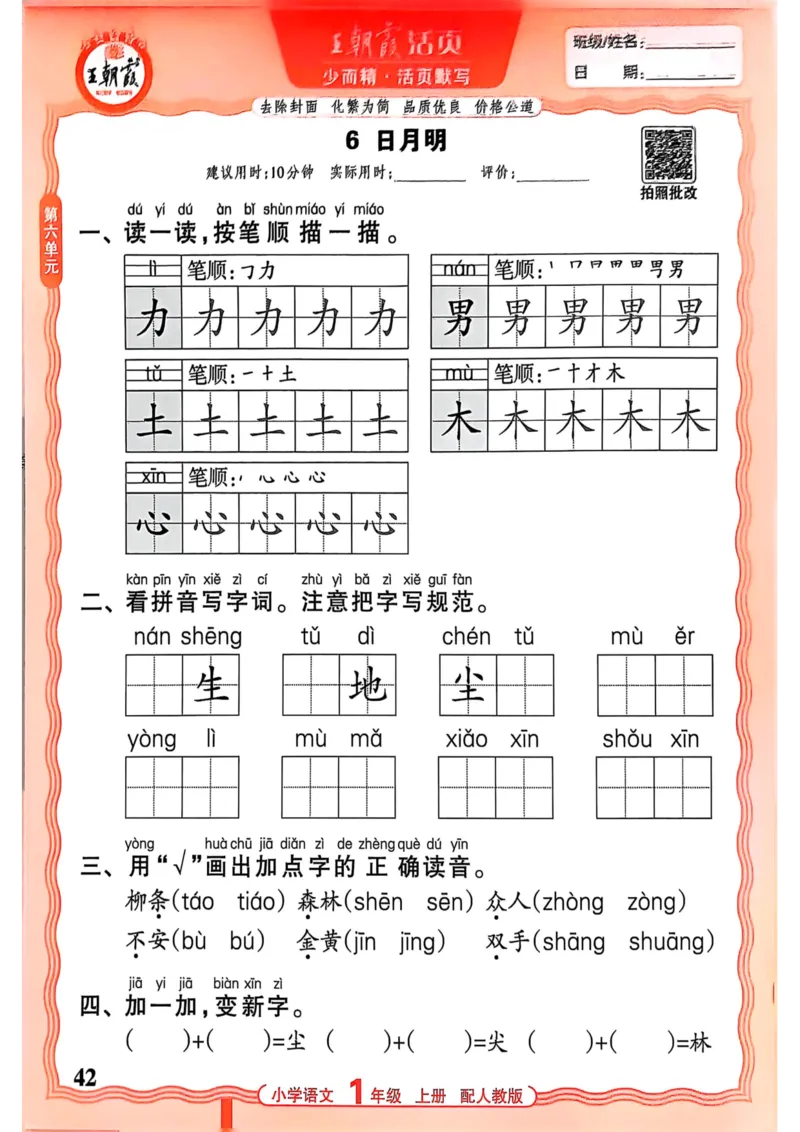 王朝霞
王朝霞活页
少而精·活页默写
班级/姓名:
日 期:
去除封面 化繁为简 品质优良 价格公道
6 日月明
建议用时:10分钟 实际用时: 评价:
拍照批改
第六单元
dú yi dú àn bǐ shùn miáo yi miáo
一、读一读,按笔顺描一描。
lì 笔顺:㇆力
力 力 力 力 力
nán 笔顺:丨 冂 日 田 田 男 男
男 男 男 男 男
tǔ 笔顺:一 十 土
土 土 土 土 土
mù 笔顺:一 十 才 木
木 木 木 木 木
xīn 笔顺:丶 心 心 心
心 心 心 心 心
kàn pīn yīn xiě zì cí zhù yì bǎ zì xiě guī fàn
二、看拼音写字词。注意把字写规范。
nán shēng tǔ dì chén tǔ mù ěr
生 地 尘
yòng lì mù mǎ xiǎo xīn shǒu xīn
yòng huà chū jiā diǎn zì de zhèng què dú yīn
三、用“√”画出加点字的正确读音。
柳条(táo tiáo) 森林(shēn sēn) 众人(zhòng zòng)
不安(bù bú) 金黄(jīn jīng) 双手(shāng shuāng)
jiā yi jiā biàn xīn zì
四、加一加,变新字。
( )+( )=尘 ( )+( )=尖 ( )+( )=林
42
小学语文 1年级 上册 配人教版